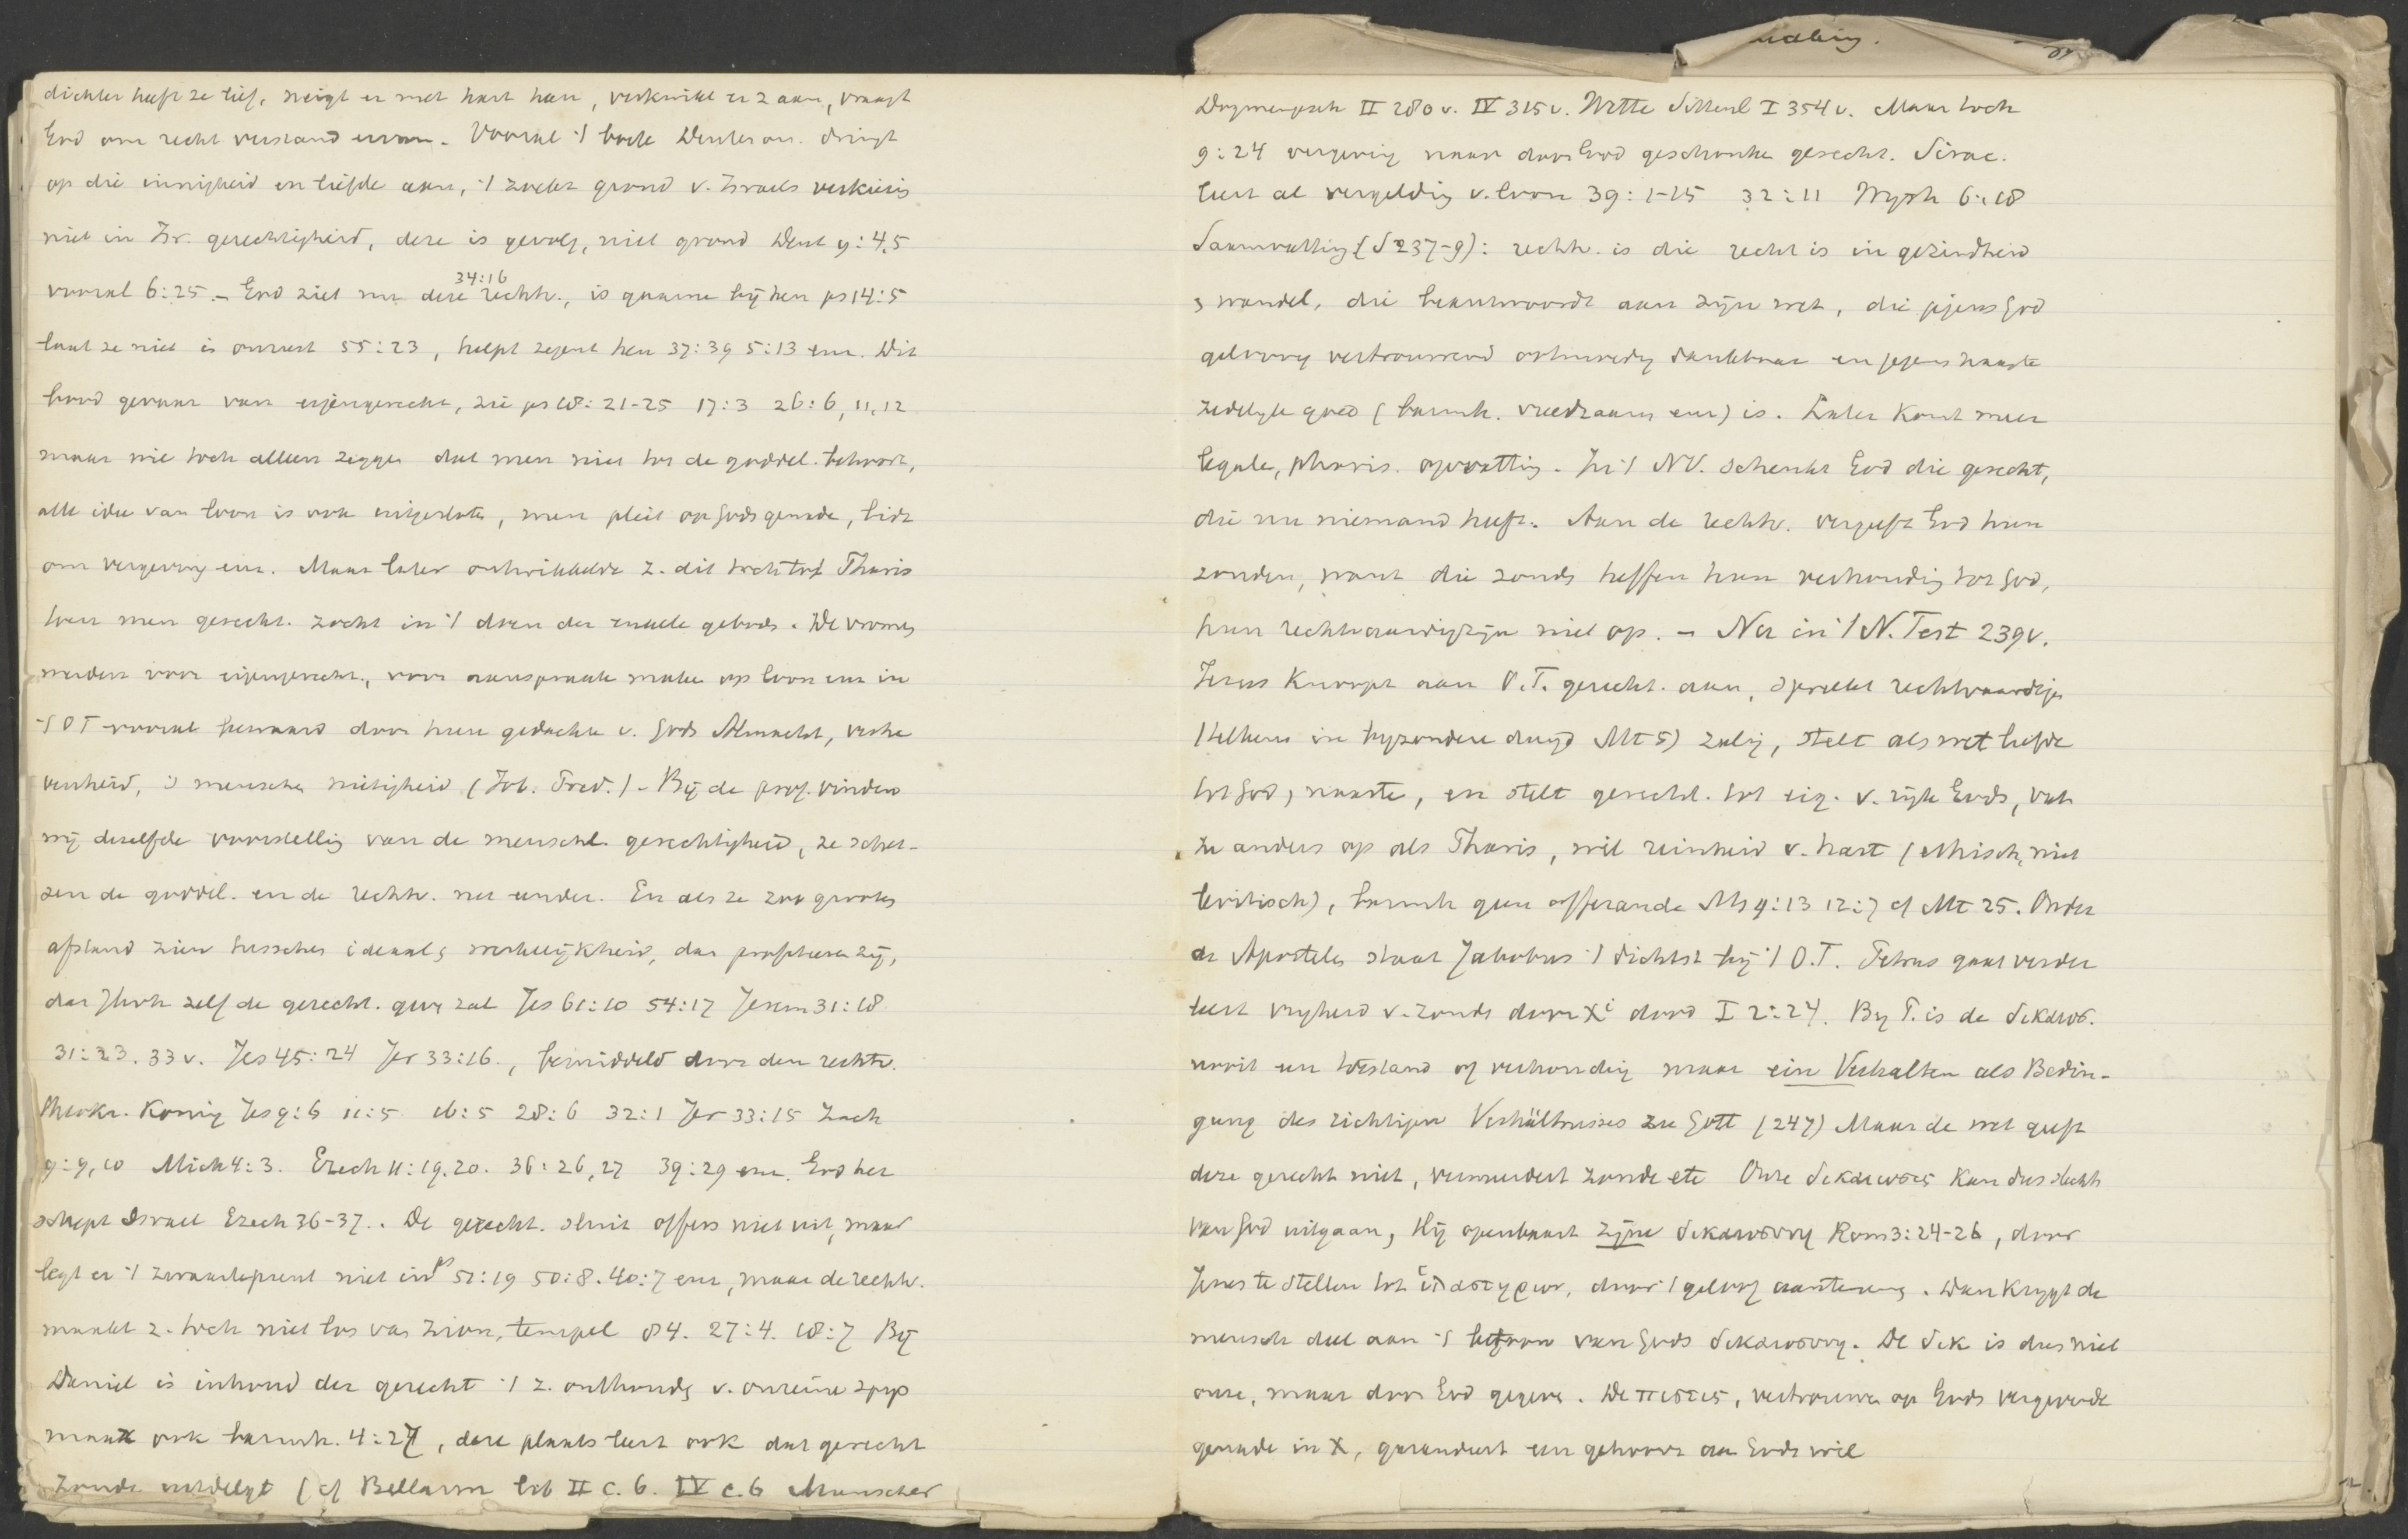 dichter heeft ze lief, neigt er met hart heen, verkwikt er z aan, vraagt
God om recht verstand ervan. Vooral 't boek Deuteron. dringt
op die innigheid en liefde aan, 't zoekt grond v. Israels verkiezing
niet in Isr. gerechtigheid, deze is gevolg, niet grond Deut 9:4,5
34:16
vooral 6:25. – God ziet nu deze rechtv., is gaarne bij hen ps 14:5
laat ze niet in onrust 55:23, helpt zegent hen 37:39 5:13 enz. Dit
bood gevaar van eigengerecht, zie ps 18:21-25 17:3 26:6,11,12
maar wil toch alleen zeggen dat men niet tot de goddel. behoort,
alle idee van loon is ook uitgesloten, men pleit op Gods genade, bidt
om vergeving enz. Maar later ontwikkelde z. dit toch tot Pharis
toen men gerecht. zocht in 't doen der enkele gebods. De vromes
werden voor eigengerecht., voor aanspraak maken op loon enz in
't OT vooral bewaard door hun gedachte v. Gods Almacht, verhe
venheid, en menschen nietigheid (Job. Pred.) – Bij de prof. vinden
wij dezelfde voorstelling van de menschl. gerechtigheid, ze schet-
sen de goddel. en de rechtv. net eender. En als ze zoo grooten
afstand zien tusschen ideaal & werkelijkheid, dan profeteeren zij,
dat Jhvh zelf de gerecht. geve zal Jes 61:10 54:17 Jerem 31:18
31:23.33 v. Jes 45:24 Jer 33:16., bemiddeld door den rechtv.
theokr. Koning Jes 9:6 11:5 16:5 28:6 32:1 Jer 33:15 Zach
9:9,10 Mich 4:3. Ezech 11:19.20. 36:26,27 39:29 enz. God her
schept Israel Ezech 36-37.. De gerecht. sluit offers niet uit, maar
legt er 't zwaartepunt niet in ps 51:19 50:8. 40:7 enz, maar de rechtv.
maakt z. toch niet los van Zion, tempel 84. 27:4. 18:7 Bij
Daniel is inhoud der gerecht 't z. onthouding v. onreine spijs
maar ook barmh. 4:27, deze plaats leert ook dat gerecht
zonde uitdelgt (cf Bellarm lib II c. 6. IV c. 6 Munscher
Dogmengesch II 280 v. IV 315 v. Wette Sittenl I 354 v. Maar toch
9:24 vergeving naar door God geschonken gerecht. Sirac.
leert al vergelding v. loon 39:1-15 32:11 Wijsh 6:18
Saamvatting (S 237-9): rechtv. is die recht is in gezindheid
& wandel, die beantwoordt aan zijn wet, die jegens God
geloovig vertrouwend ootmoedig dankbaar en jegens naaste
zedelijk goed (barmh. vreedzaam enz) is. Later komt meer
legale, pharis. opvatting. In 't NV. schenkt God die gerecht,
die nu niemand heeft. Aan de rechtv. vergeeft God hun
zonden, want die zonds heffen hun verhouding tot God,
hun rechtvaardigzijn niet op. – Nu in 't N. Test 239 v.
Jezus knoopt aan O.T. gerecht. aan, spreekt rechtvaardigen
(telkens in byzondere deugd Mt 5) zalig, stelt als wet liefde
tot God, naaste, en stelt gerecht. tot eig. v. rijk Gods, vat
ze anders op als Pharis, wil reinheid v. hart (ethisch, niet
levitisch), barmh geen offerande Mt 9:13 12:7 cf Mt 25. Onder
de Apostelen staat Jakobus 't dichtst bij 't O.T. Petrus gaat verder
leert vrijheid v. zonde door Xi dood I 2:24. By P. is de δικαιοσ.
nooit een toestand of verhouding maar ein Verhalten als Bedin-
gung des richtigen Verhältnisses zu Gott (247) Maar de wet geeft
deze gerecht niet, vermeerdert zonde etc Onze δικαιωσις kan dus slechts
van God uitgaan, Hij openbaart zijne δικαιοσυνη Rom 3:24-26, door
Jezus te stellen tot ἱλαστηριον, door 't geloof aanteneming. Dan krygt de
mensch deel aan 't betoon van Gods δικαιοσυνη. De δικ is dus niet
onze, maar door God gegeven. De πιστις, vertrouwen op Gods vergevende
genade in X, garandeert een gehoorz aan Gods wil